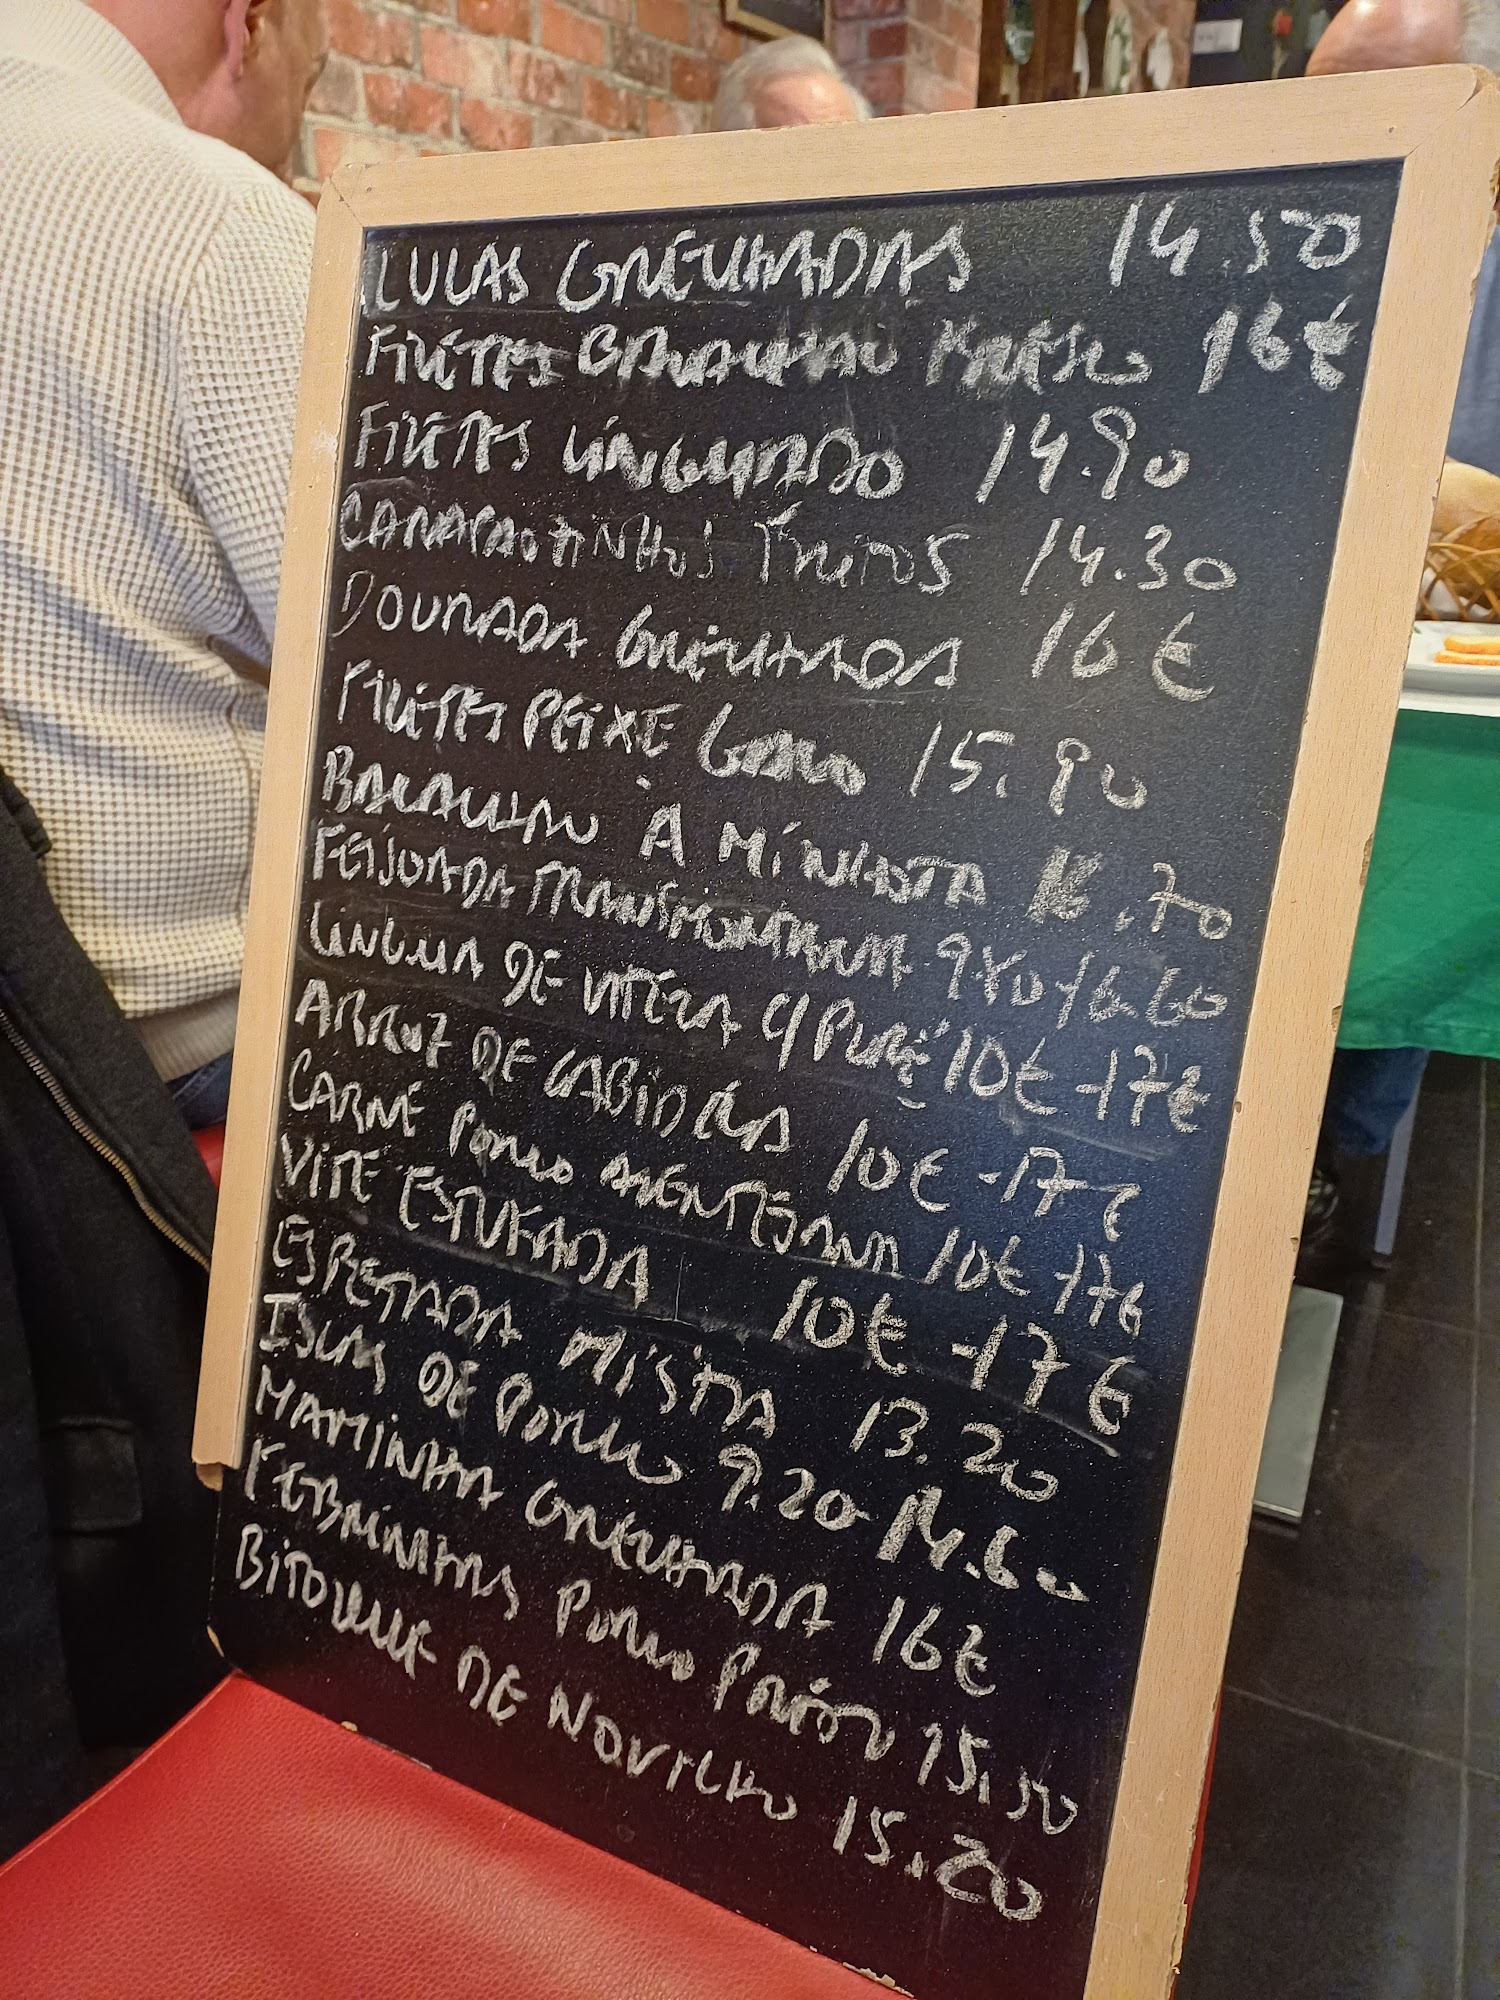 LULAS GRELHADAS 14.50
FILETES BACALHAU FRESCO 16€
FILETES LINGUADO 14.90
CARAPAUZINHOS FRITOS 14.30
DOURADA GRELHADA 16€
FILETES PEIXE GALO 15.90
BACALHAU À MINHOTA 16.70
FEIJOADA TRANSMONTANA 9.80 16.60
LINGUA DE VITELA C/PURÉ 10€ - 17€
ARROZ DE CABIDELA 10€ - 17€
CARNE PORCO ALENTEJANA 10€ - 17€
VITE ESTUFADA 10€ - 17€
ESPETADA MISTA 13.20
ISCAS DE PORCO 9.20 14.60
MAMINHA GRELHADA 16€
FEBRINHAS PORCO PRÉTO 15.50
BITOQUE DE NOVILHO 15.20